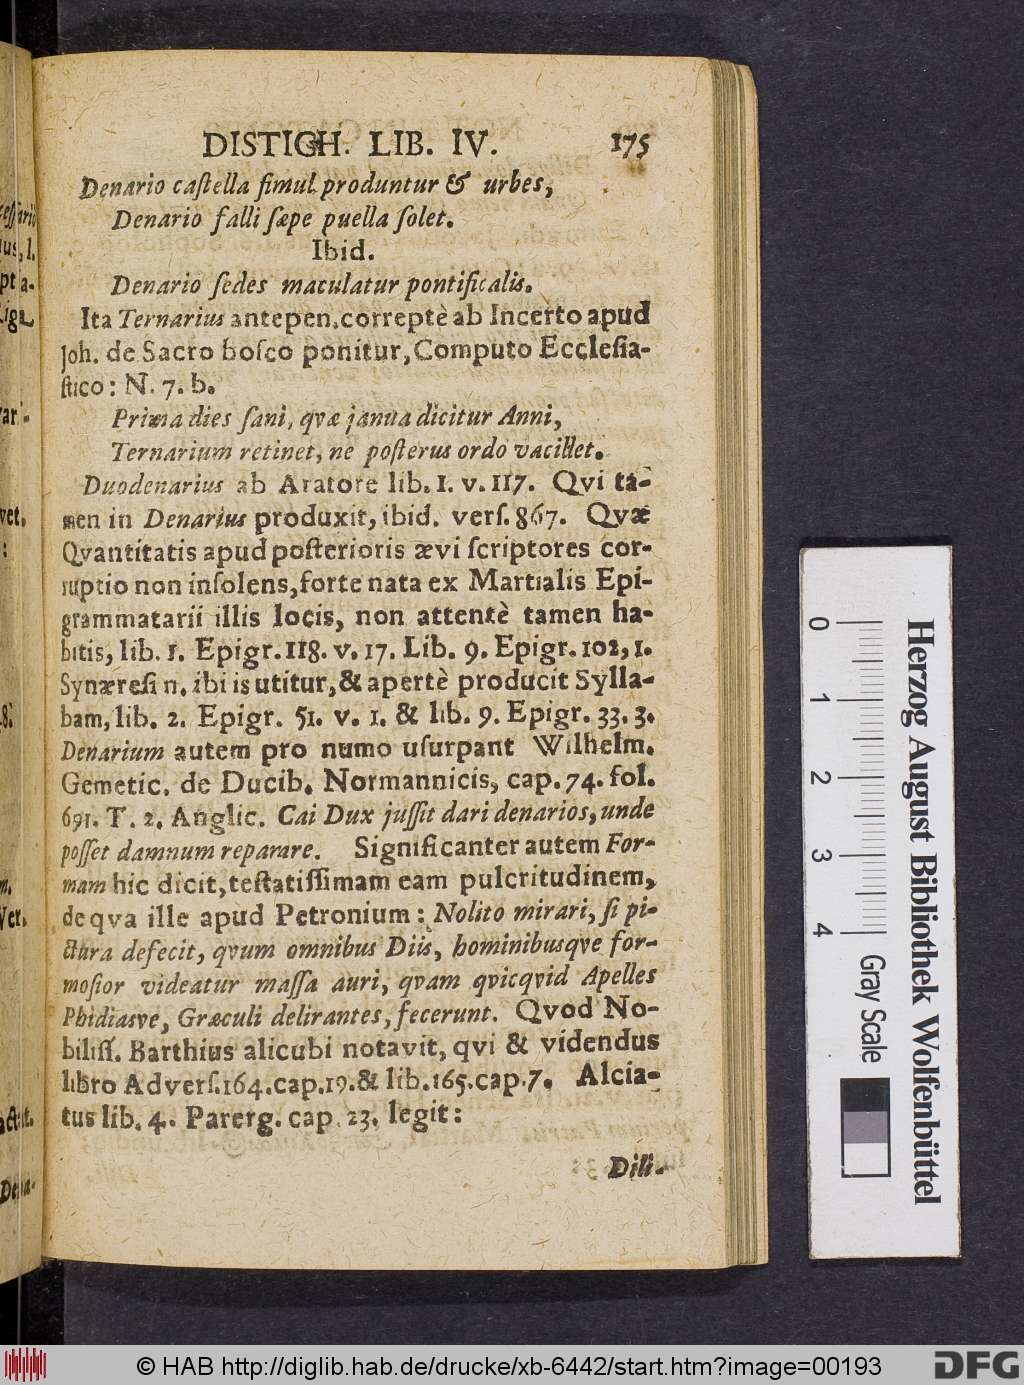 DISTICH. LIB. IV. 175
Denario castella simul produntur & urbes,
Denario falli sæpe puella solet.
Ibid.
Denario sedes maculatur pontificalis.
Ita Ternarius antepen. correptè ab Incerto apud
Joh. de Sacro bosco ponitur, Computo Ecclesia-
stico: N. 7. b.
Prima dies sani, qvæ janua dicitur Anni,
Ternarium retinet, ne posterus ordo vacillet.
Duodenarius ab Aratore lib. 1. v. 117. Qvi ta-
men in Denarius produxit, ibid. vers. 867. Qvæ
Qvantitatis apud posterioris ævi scriptores cor-
ruptio non insolens, forte nata ex Martialis Epi-
grammatarii illis locis, non attentè tamen ha-
bitis, lib. 1. Epigr. 118. v. 17. Lib. 9. Epigr. 102, 1.
Synæresi n. ibi is utitur, & apertè producit Sylla-
bam, lib. 2. Epigr. 51. v. 1. & lib. 9. Epigr. 33. 3.
Denarium autem pro numo usurpant Wilhelm.
Gemetic. de Ducib. Normannicis, cap. 74. fol.
691. T. 2. Anglic. Cai Dux jussit dari denarios, unde
posset damnum reparare. Significanter autem For-
mam hic dicit, testatissimam eam pulcritudinem,
de qva ille apud Petronium: Nolito mirari, si pi-
ctura defecit, qvum omnibus Diis, hominibusqve for-
mosior videatur massa auri, qvam qvicqvid Apelles
Phidiasve, Græculi delirantes, fecerunt. Qvod No-
biliss. Barthius alicubi notavit, qvi & videndus
libro Advers. 164. cap. 19. & lib. 165. cap. 7. Alcia-
tus lib. 4. Parerg. cap. 23. legit:
Dili-
0 1 2 3 4
Herzog August Bibliothek Wolfenbüttel
Gray Scale
© HAB http://diglib.hab.de/drucke/xb-6442/start.htm?image=00193
DFG